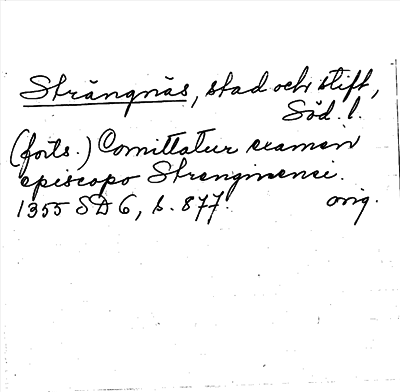 Strängnäs, stad och stift,
Söd. l.
(forts.) Comittatur examen
episcopo Strenginensi.
1355 SD 6, s. 877. orig.